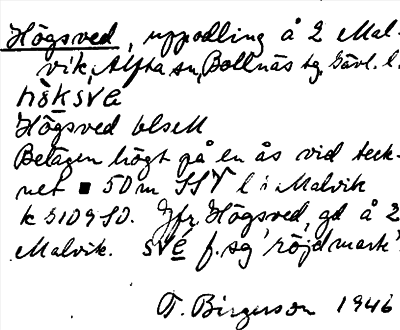 Högsved, uppodling å 2 Mal-
vik, Alfta sn, Bollnäs tg, Gävl. l.
hö̀ksve̠
Högsved blsM
Belägen högt på en ås vid teck-
net ■ 50 m SSV l i Malvik
k 5109 SO. Jfr Högsved, gd å 2
Malvik. sve̠ f. sg 'röjd mark'.
T. Birgerson 1946